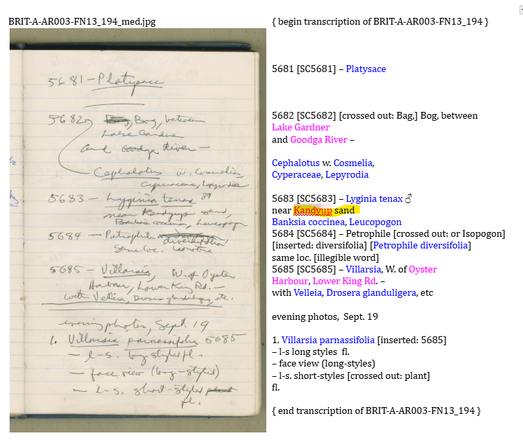 BRIT-A-AR003-FN13_194_med.jpg
{ begin transcription of BRIT-A-AR003-FN13_194 }
5681 – Platysace
5682 Bog, between
Lake Gardner
and Goodga River –
Cephalotus w. Cosmelia,
Cyperaceae, Lepyrodia
5683 – Lyginia tenax ♂
near Kandyup sand,
Banksia coccinea, Leucopogon
5684 – Petrophile diversifolia
same loc.
5685 – Villarsia, W. of Oyster
Harbour, Lower King Rd. –
with Velleia, Drosera glanduligera, etc.
evening photos, Sept. 19
1. Villarsia parnassifolia 5685
– l-s. long styles fl.
– face view (long-styled)
– l-s. short-styles plant
fl.
5681 [SC5681] – Platysace
5682 [SC5682] [crossed out: Bag,] Bog, between
Lake Gardner
and Goodga River –
Cephalotus w. Cosmelia,
Cyperaceae, Lepyrodia
5683 [SC5683] – Lyginia tenax ♂
near Kandyup sand
Banksia coccinea, Leucopogon
5684 [SC5684] – Petrophile [crossed out: or Isopogon]
[inserted: diversifolia] [Petrophile diversifolia]
same loc. [illegible word]
5685 [SC5685] – Villarsia, W. of Oyster
Harbour, Lower King Rd. –
with Velleia, Drosera glanduligera, etc
evening photos, Sept. 19
1. Villarsia parnassifolia [inserted: 5685]
– l-s long styles fl.
– face view (long-styles)
– l-s. short-styles [crossed out: plant]
fl.
{ end transcription of BRIT-A-AR003-FN13_194 }